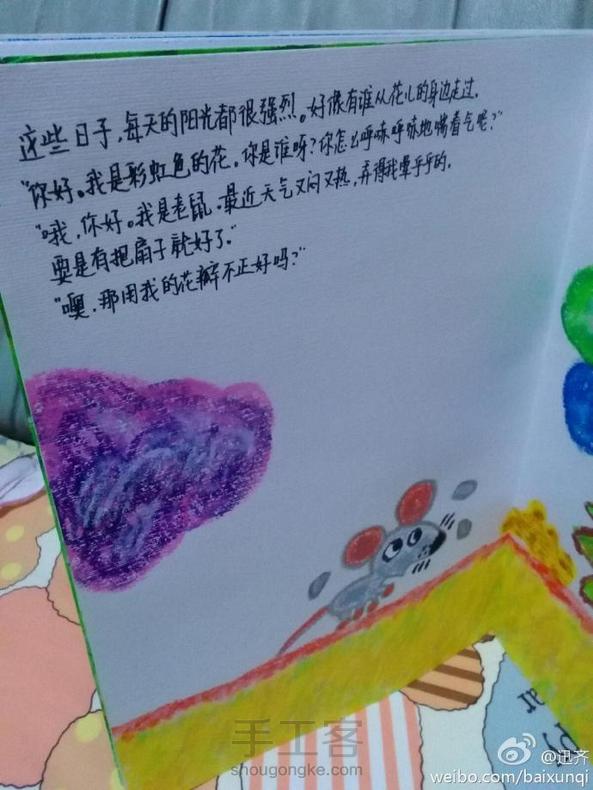 这些日子，每天的阳光都很强烈。好像有谁从花儿的身边走过。
“你好。我是彩虹色的花。你是谁呀？你怎么呼哧呼哧地喘着气呢？”
“哦，你好。我是老鼠，最近天气又闷又热，弄得我晕乎乎的。
要是有把扇子就好了。”
“噢，那用我的花瓣不正好吗？”
手工客
shougongke.com
@迅齐
weibo.com/baixunqi